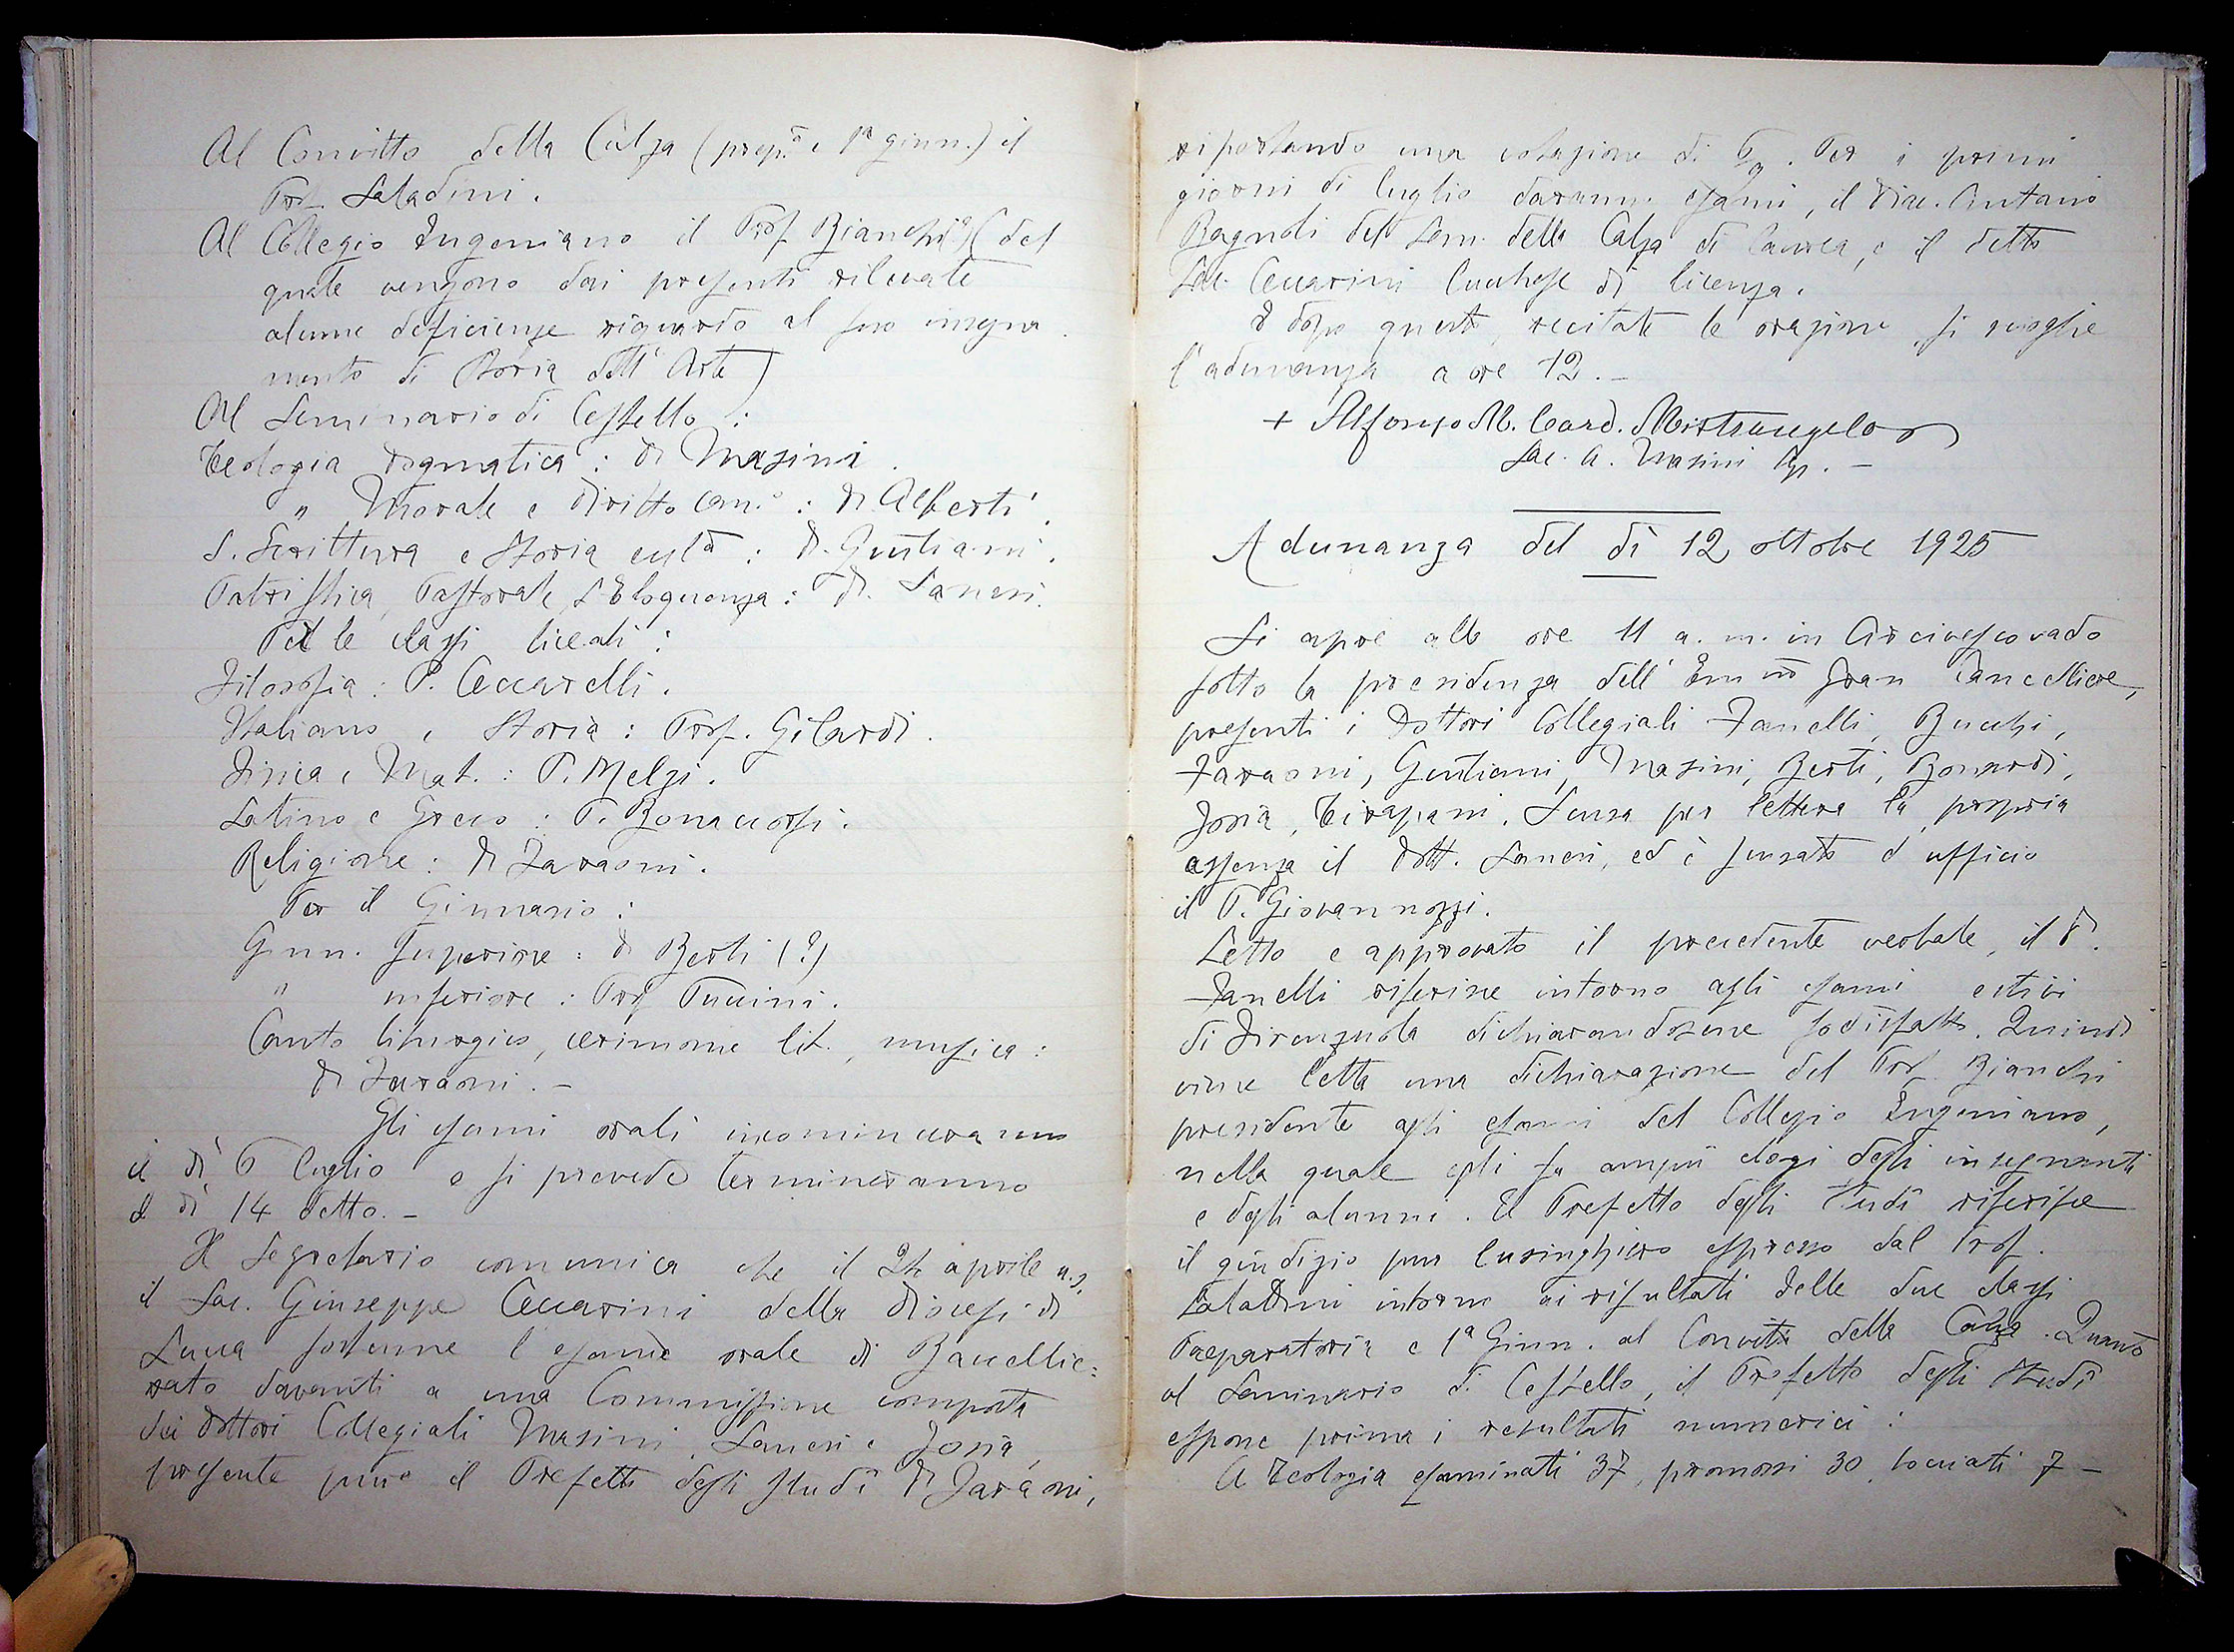 Al Convitto della Calza (prep.a e 1a ginn.) il
Prof. Saladini.
Al Collegio Eugeniano il Prof. Bianchi (?) (del
quale vengono dai presenti rilevate
alcune deficienze riguardo al suo insegna-
mento di Storia dell'Arte)
Al Seminario di Cestello:
Teologia dogmatica: D. Masini.
" Morale e Diritto Can.o: D. Alberti.
S. Scrittura e Storia eccl.a: D. Giuliani.
Patristica, Pastorale, S. Eloquenza: D. Saneri.
Per le classi liceali:
Filosofia: P. Ceccarelli.
Italiano e Storia: Prof. Gilardi.
Fisica e Mat.: P. Melzi.
Latino e Greco: P. Bonaccorsi.
Religione: D. Faraoni.
Per il Ginnasio:
Ginn. Superiore: D. Berti (?)
" inferiore: Prof. Puccini.
Canto liturgico, cerimonie lit., musica:
D. Faraoni. -
Gli esami orali incominceranno
il dì 6 luglio e si prevede termineranno
il dì 14 detto. -
Il Segretario comunica che il 24 aprile u.s.
il Sac. Giuseppe Ceccarini della diocesi di
Lucca sostenne l'esame orale di Baccellie=
rato davanti a una Commissione composta
dei dottori Collegiali Masini, Saneri e Josia,
presente pure il Prefetto degli Studî D. Faraoni,
riportando una votazione di 6/9. Per i primi
giorni di luglio daranno esami, il Diac. Antonio
Bagnoli del Sem. della Calza di laurea, e il detto
Sac. Ceccarini lucchese di licenza.
E dopo questo, recitate le orazioni, si scioglie
l'adunanza a ore 12. -
+ Alfonso M. Card. Mistrangelo
Sac. A. Masini
Adunanza del dì 12 ottobre 1925
Si apre alle ore 11 a.m. in Arcivescovado
sotto la presidenza dell'Em.mo Gran Cancelliere,
presenti i Dottori Collegiali Fanelli, Bucchi,
Faraoni, Giuliani, Masini, Berti, Bonardi,
Josia, Tirapani. Scusa per lettera la propria
assenza il Dott. Saneri, ed è scusato d'ufficio
il P. Giovannozzi.
Letto e approvato il precedente verbale, il D.
Fanelli riferisce intorno agli esami estivi
di Firenzuola dichiarandosene sodisfatto. Quindi
viene letta una dichiarazione del Prof. Bianchi
presidente agli esami del Collegio Eugeniano,
nella quale egli fa ampii elogi degli insegnanti
e degli alunni. Il Prefetto degli Studî riferisce
il giudizio pur lusinghiero espresso dal Prof.
Saladini intorno ai risultati delle due classi
Preparatoria e 1a Ginn. al Convitto della Calza. Quanto
al Seminario di Cestello, il Prefetto degli Studî
espone prima i resultati numerici:
A Teologia esaminati 37, promossi 30, bocciati 7 -